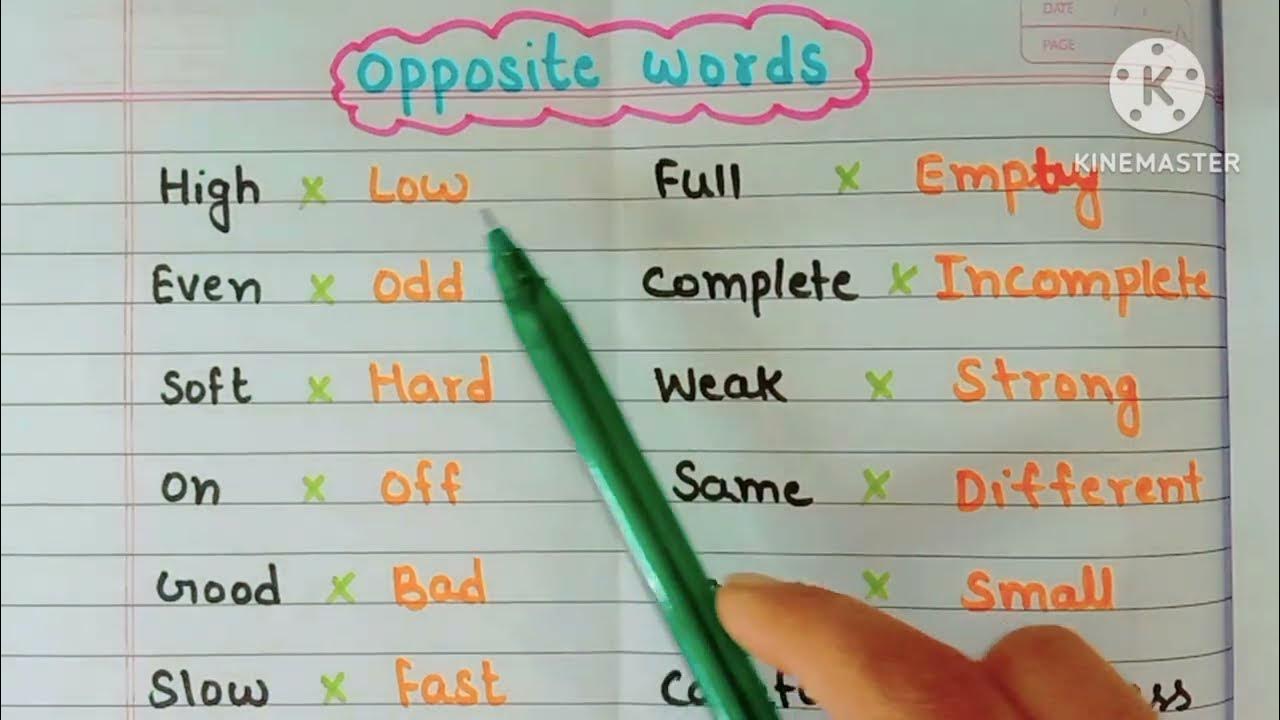 DATE
PAGE
Opposite words
K
KINEMASTER
High x Low
Full x Empty
Even x Odd
Complete x Incomplete
Soft x Hard
Weak x Strong
On x Off
Same x Different
Good x Bad
x Small
Slow x Fast